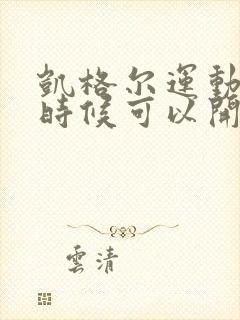 凱格尔運動
時候可以開
雲清